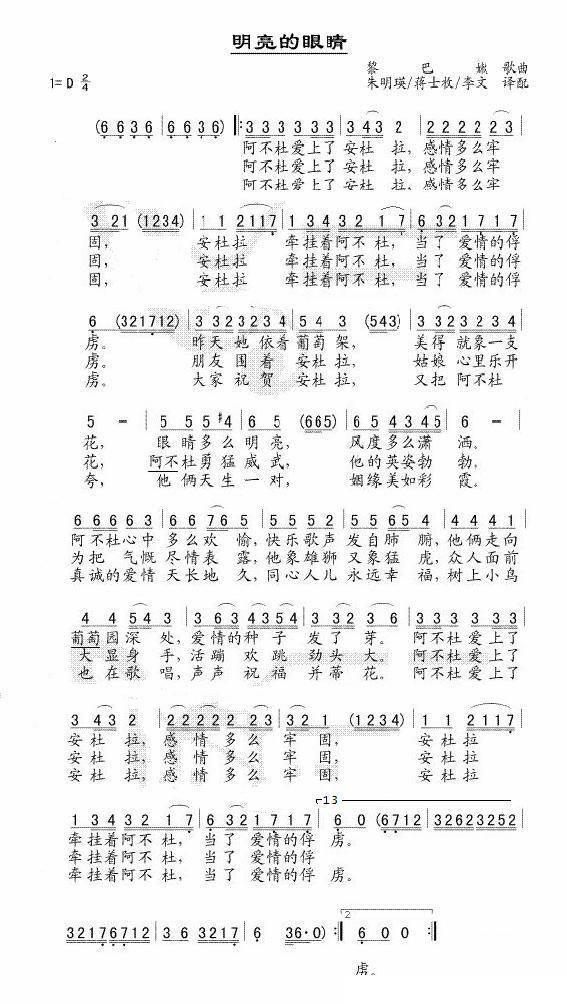 明亮的眼睛
黎巴嫩 歌曲
1=D 2/4 朱明瑛/蒋士枚/李文 译配
(6 6 3 6 | 6 6 3 6) |: 3 3 3 3 3 3 | 3 4 3 2 | 2 2 2 2 2 3 |
阿不杜爱上了 安杜 拉, 感情多么牢
阿不杜爱上了 安杜 拉, 感情多么牢
阿不杜爱上了 安杜 拉, 感情多么牢
3 2 1 (1 2 3 4) | 1 1 2 1 1 7 | 1 3 4 3 2 1 7 | 6 3 2 1 7 1 7 |
固, 安杜拉 牵挂着阿不 杜, 当了 爱情的俘
固, 安杜拉 牵挂着阿不 杜, 当了 爱情的俘
固, 安杜拉 牵挂着阿不 杜, 当了 爱情的俘
6 (3 2 1 7 1 2) | 3 3 2 3 2 3 4 | 5 4 3 (5 4 3) | 2 1 2 3 2 3 4 |
虏。 昨天她依着葡萄架, 美得就象一支
虏。 朋友围着安杜拉, 姑娘心里乐开
虏。 大家祝贺安杜拉, 又把阿不杜
5 - | 5 5 5 #4 | 6 5 (6 6 5) | 6 5 4 3 4 5 | 6 - |
花, 眼睛多么明亮, 风度多么潇洒。
花, 阿不杜勇猛威武, 他的英姿勃勃,
夸, 他俩天生一对, 姻缘美如彩霞。
6 6 6 6 3 | 6 6 7 6 5 | 5 5 5 5 | 5 5 6 5 4 | 5 5 5 5 |
阿不杜心中 多么欢 愉, 快乐歌声 发自肺 腑, 他俩走向
为把气慨 尽情表 露, 他象雄狮 又象猛 虎, 众人面前
真诚的爱情 天长地 久, 同心人儿 永远幸 福, 树上小鸟
4 4 5 4 3 | 3 6 3 4 3 5 4 | 3 3 2 3 | 3 3 3 3 3 3 |
葡萄园深 处, 爱情的种子 发了芽。 阿不杜爱上了
大显身 手, 活蹦欢跳 劲头大。 阿不杜爱上了
也在歌 唱, 声声祝福 并蒂花。 阿不杜爱上了
3 4 3 2 | 2 2 2 2 2 2 3 | 3 2 1 (1 2 3 4) | 1 1 2 1 1 7 |
安杜拉, 感情多么 牢固, 安杜拉
安杜拉, 感情多么 牢固, 安杜拉
安杜拉, 感情多么 牢固, 安杜拉
13
1 3 4 3 2 1 7 | 6 3 2 1 7 1 7 | 6 0 (6 7 1 2 | 3 2 6 2 3 2 5 2 |
牵挂着阿不 杜, 当了 爱情的俘 虏。
牵挂着阿不 杜, 当了 爱情的俘
牵挂着阿不 杜, 当了 爱情的俘 虏。
2
3 2 1 7 6 7 1 2 | 3 6 3 2 1 7 | 6 3 6·0) :| 6 0 0 :|
虏。